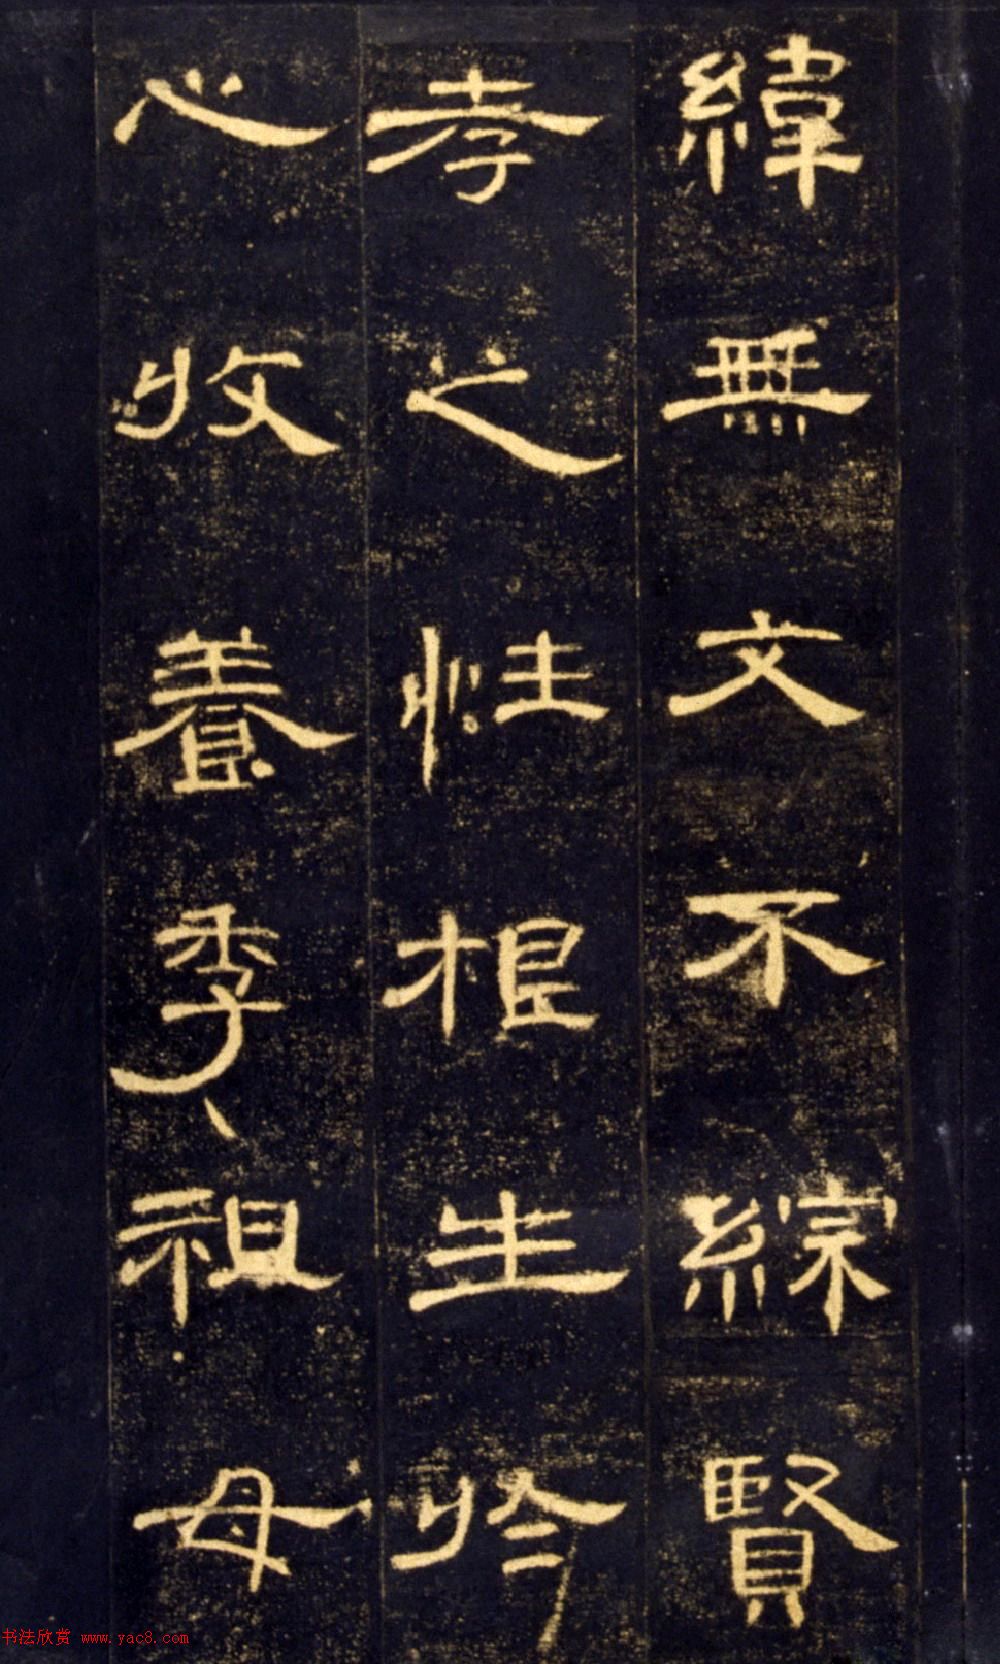 緯無文不綜賢
孝之性根生於
心收養季祖母
书法欣赏 www.yac8.com